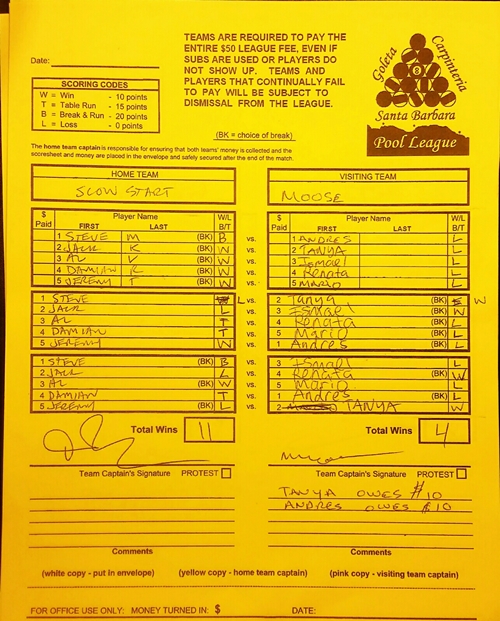 TEAMS ARE REQUIRED TO PAY THE
ENTIRE $50 LEAGUE FEE, EVEN IF
SUBS ARE USED OR PLAYERS DO
NOT SHOW UP. TEAMS AND
PLAYERS THAT CONTINUALLY FAIL
TO PAY WILL BE SUBJECT TO
DISMISSAL FROM THE LEAGUE.
(BK = choice of break)
Goleta
Carpinteria
8
Santa Barbara
Pool League
Date:
SCORING CODES
W = Win - 10 points
T = Table Run - 15 points
B = Break & Run - 20 points
L = Loss - 0 points
The home team captain is responsible for ensuring that both teams' money is collected and the
scoresheet and money are placed in the envelope and safely secured after the end of the match.
HOME TEAM VISITING TEAM
SLOW START MOOSE
$ Paid Player Name FIRST LAST W/L B/T $ Paid Player Name FIRST LAST W/L B/T
1 STEVE M (BK) B vs. 1 ANDRES L
2 JACK K (BK) W vs. 2 TANYA L
3 AL V (BK) W vs. 3 Ismael L
4 DAMIAN R (BK) W vs. 4 Renata L
5 JEREMY T (BK) W vs. 5 MARIO L
1 STEVE L vs. 2 Tanya (BK) W
2 JACK L vs. 3 Ismael (BK) W
3 AL T vs. 4 Renata (BK) L
4 DAMIAN T vs. 5 Mario (BK) L
5 JEREMY W vs. 1 Andres (BK) L
1 STEVE (BK) B vs. 3 Ismael L
2 JACK L vs. 4 Renata (BK) W
3 AL (BK) W vs. 5 Mario L
4 DAMIAN T vs. 1 Andres (BK) L
5 JEREMY (BK) L vs. 2 TANYA W
Total Wins 11 Total Wins 4
Team Captain's Signature PROTEST Team Captain's Signature PROTEST
TANYA OWES $10
ANDRES OWES $10
Comments Comments
(white copy - put in envelope) (yellow copy - home team captain) (pink copy - visiting team captain)
FOR OFFICE USE ONLY: MONEY TURNED IN: $ DATE: